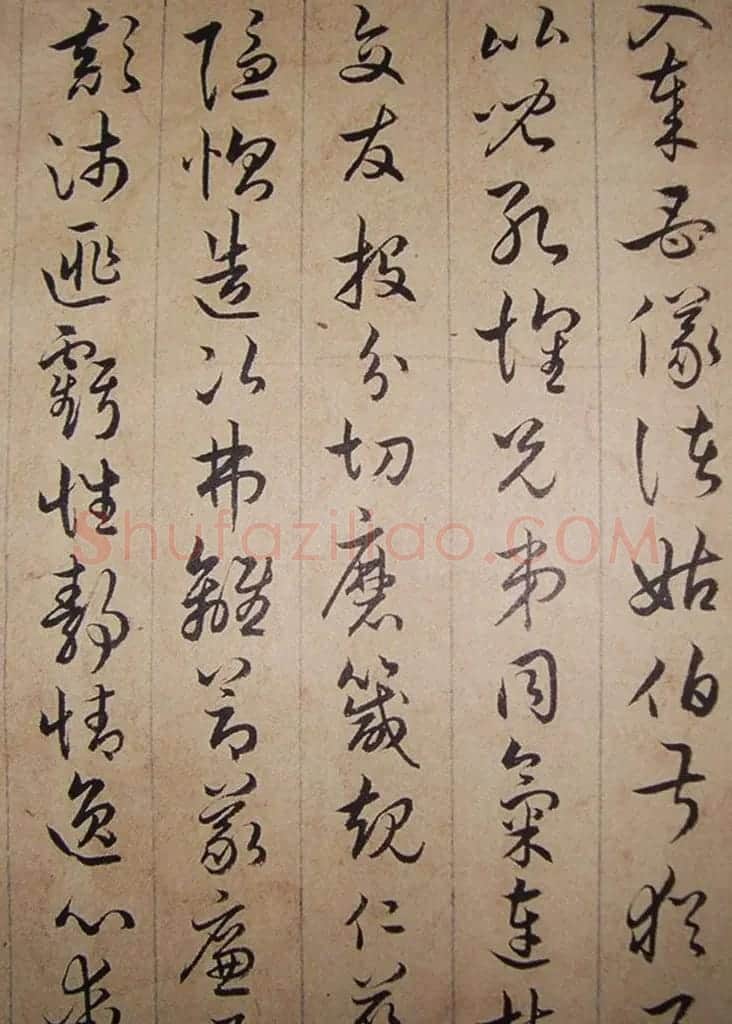 入奉母儀諸姑伯叔猶
比兒孔懷兄弟同氣連
交友投分切磨箴規仁慈
隱惻造次弗離節義廉
顛沛匪虧性靜情逸心動
Shufaziliao.COM